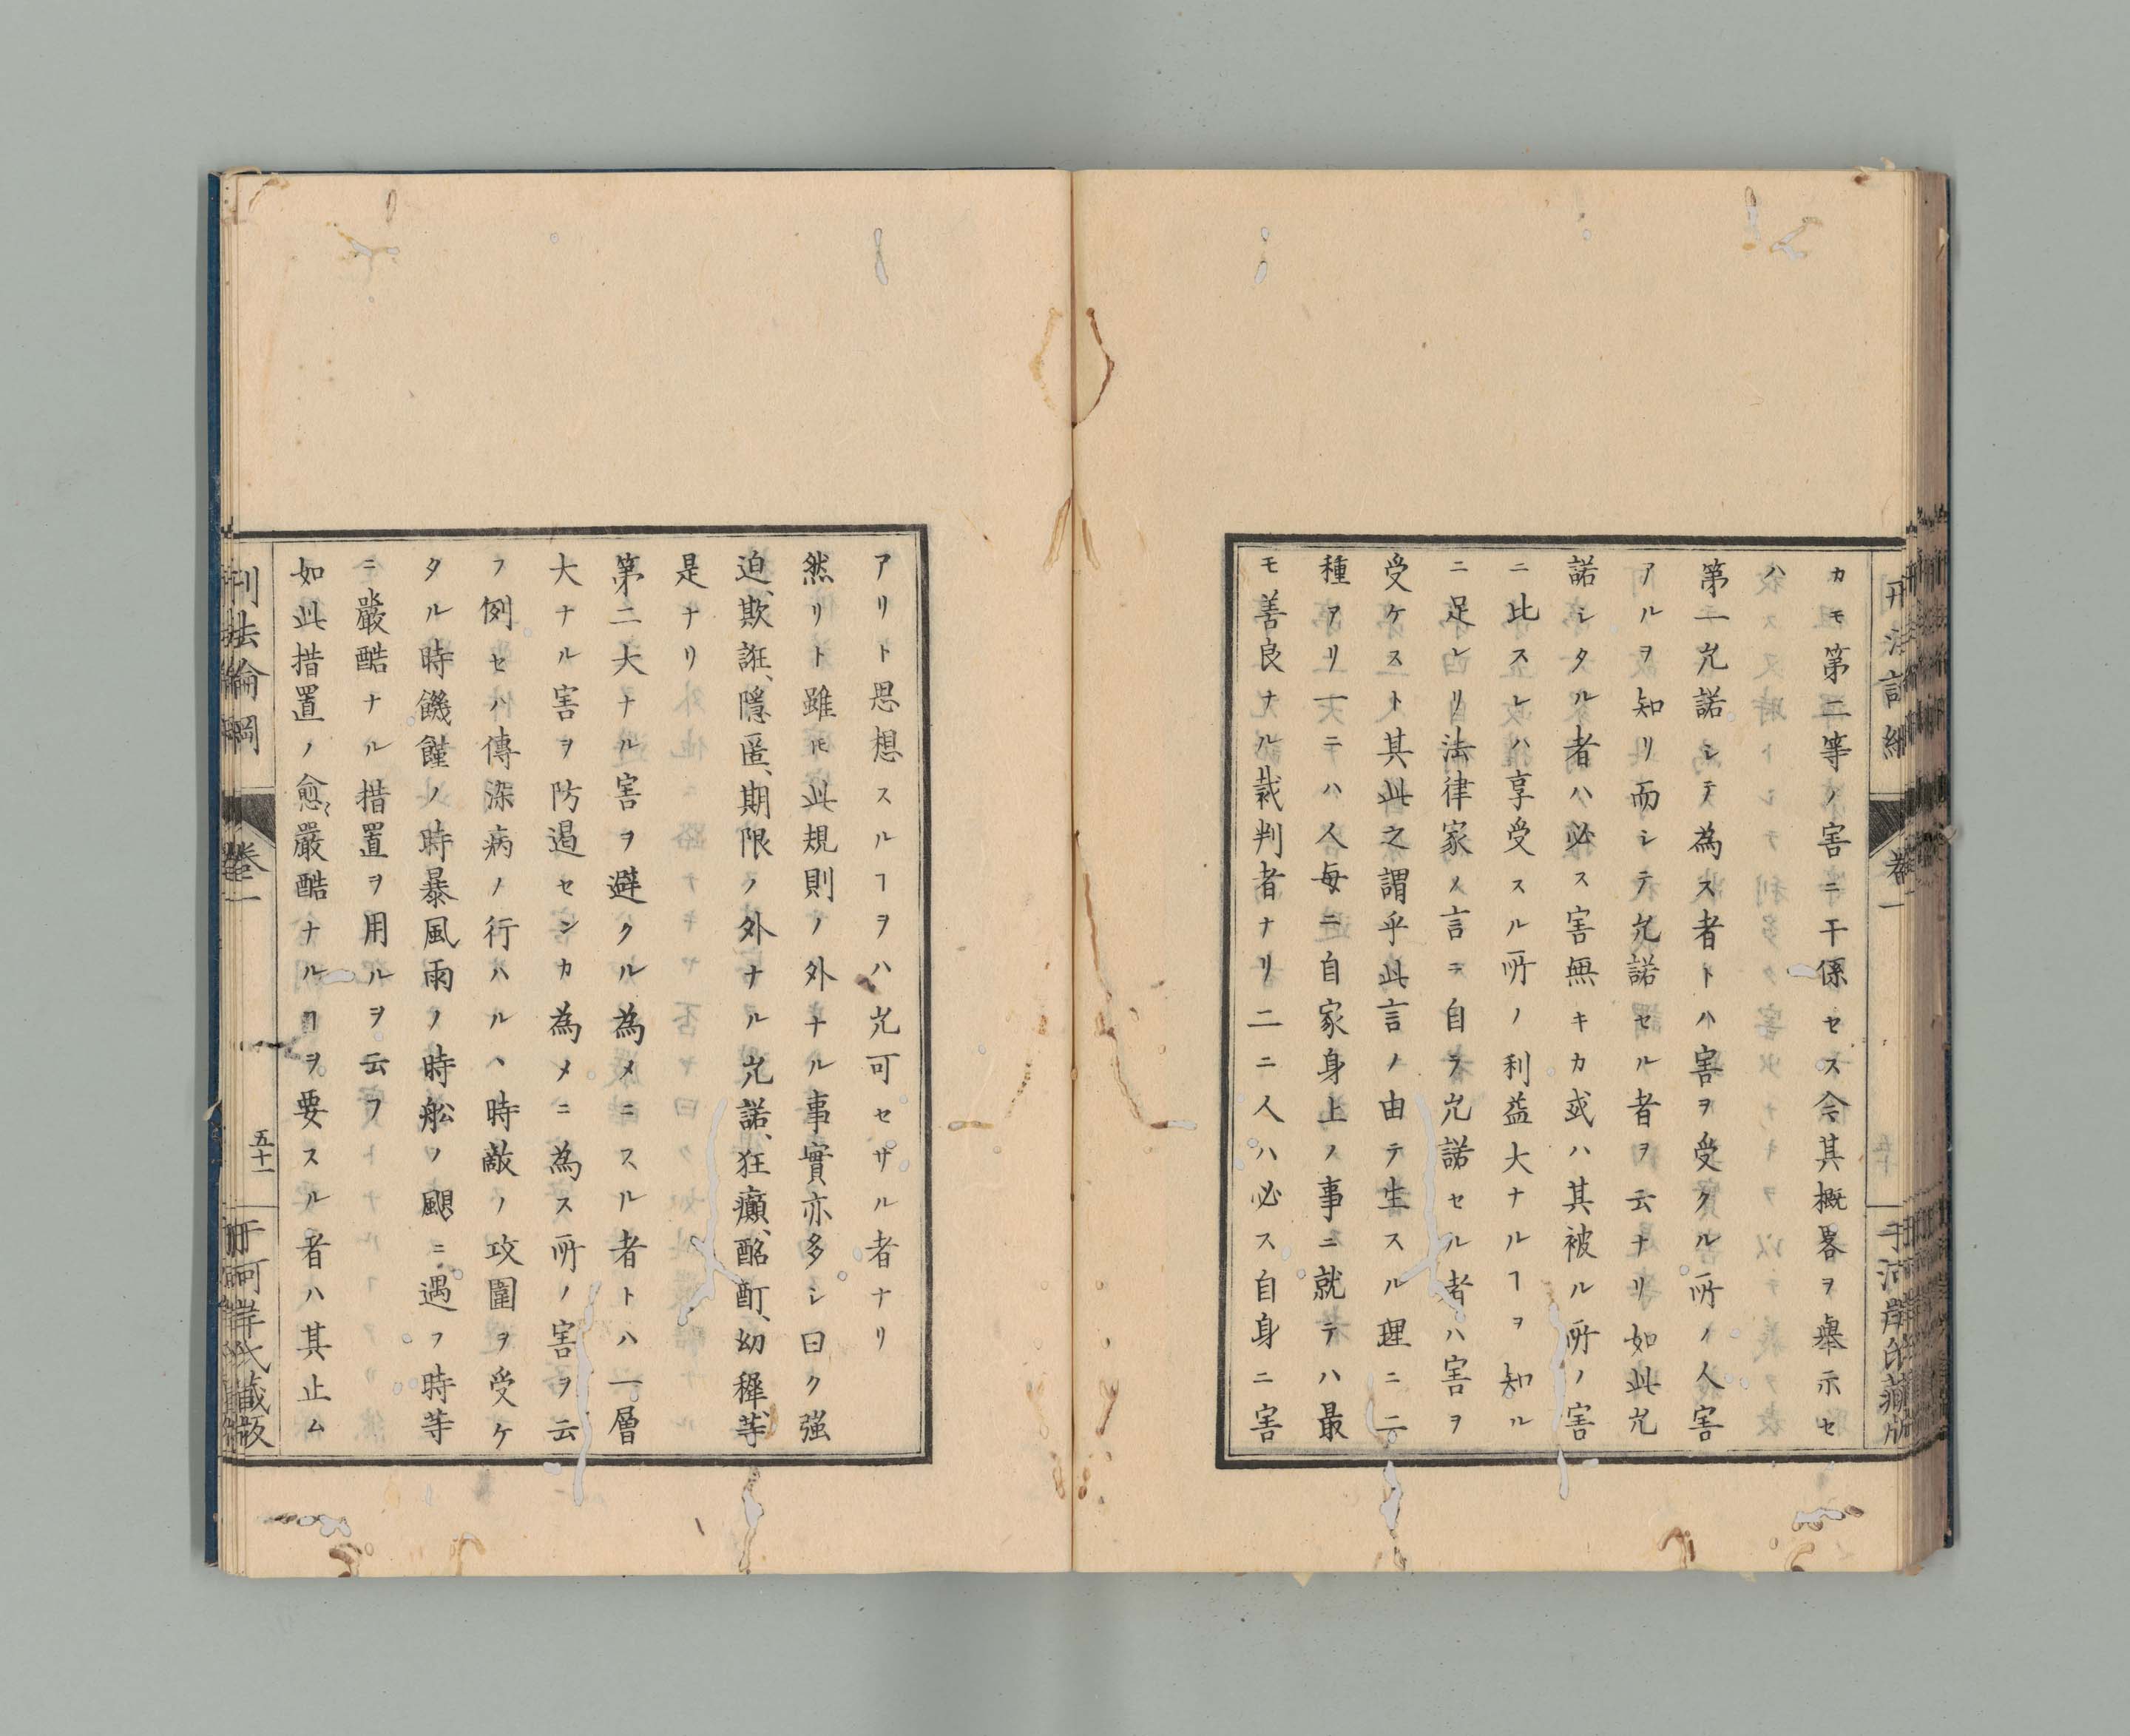 カモ第二等ノ害ニ干係セス今其概畧ヲ舉示セ
ハ
第一允諾シテ為ス者トハ害ヲ受クル所ノ人害
アルヲ知リ而シテ允諾セル者ヲ云ナリ如此允
諾シタル者ハ必ス害無キカ或ハ其被ル所ノ害
ニ比スレハ享受スル所ノ利益大ナルヿヲ知ル
ニ足レリ法律家ノ言ニ自ラ允諾セル者ハ害ヲ
受ケスト其此之謂乎此言ノ由テ生スル理ニ二
種アリ一ニハ人每ニ自家身上ノ事ニ就テハ最
モ善良ナル裁判者ナリ二ニ人ハ必ス自身ニ害
アリト思想スルヿヲハ允可セザル者ナリ
然リト雖モ此規則ノ外ナル事實亦多シ曰ク強
迫、欺誑、隱匿、期限ノ外ナル允諾、狂癲、酩酊、幼穉等
是ナリ
第二大ナル害ヲ避クル為メニスル者トハ一層
大ナル害ヲ防遏センカ為メニ為ス所ノ害ヲ云
フ例セハ傳染病ノ行ハルヽ時敵ノ攻圍ヲ受ケ
タル時饑饉ノ時暴風雨ノ時舩ノ颶ニ遇フ時等
ニ嚴酷ナル措置ヲ用ルヲ云フ
如此措置ノ愈嚴酷ナルヿヲ要スル者ハ其止ム
刑法論綱
卷一
五十一
于河岸氏藏版